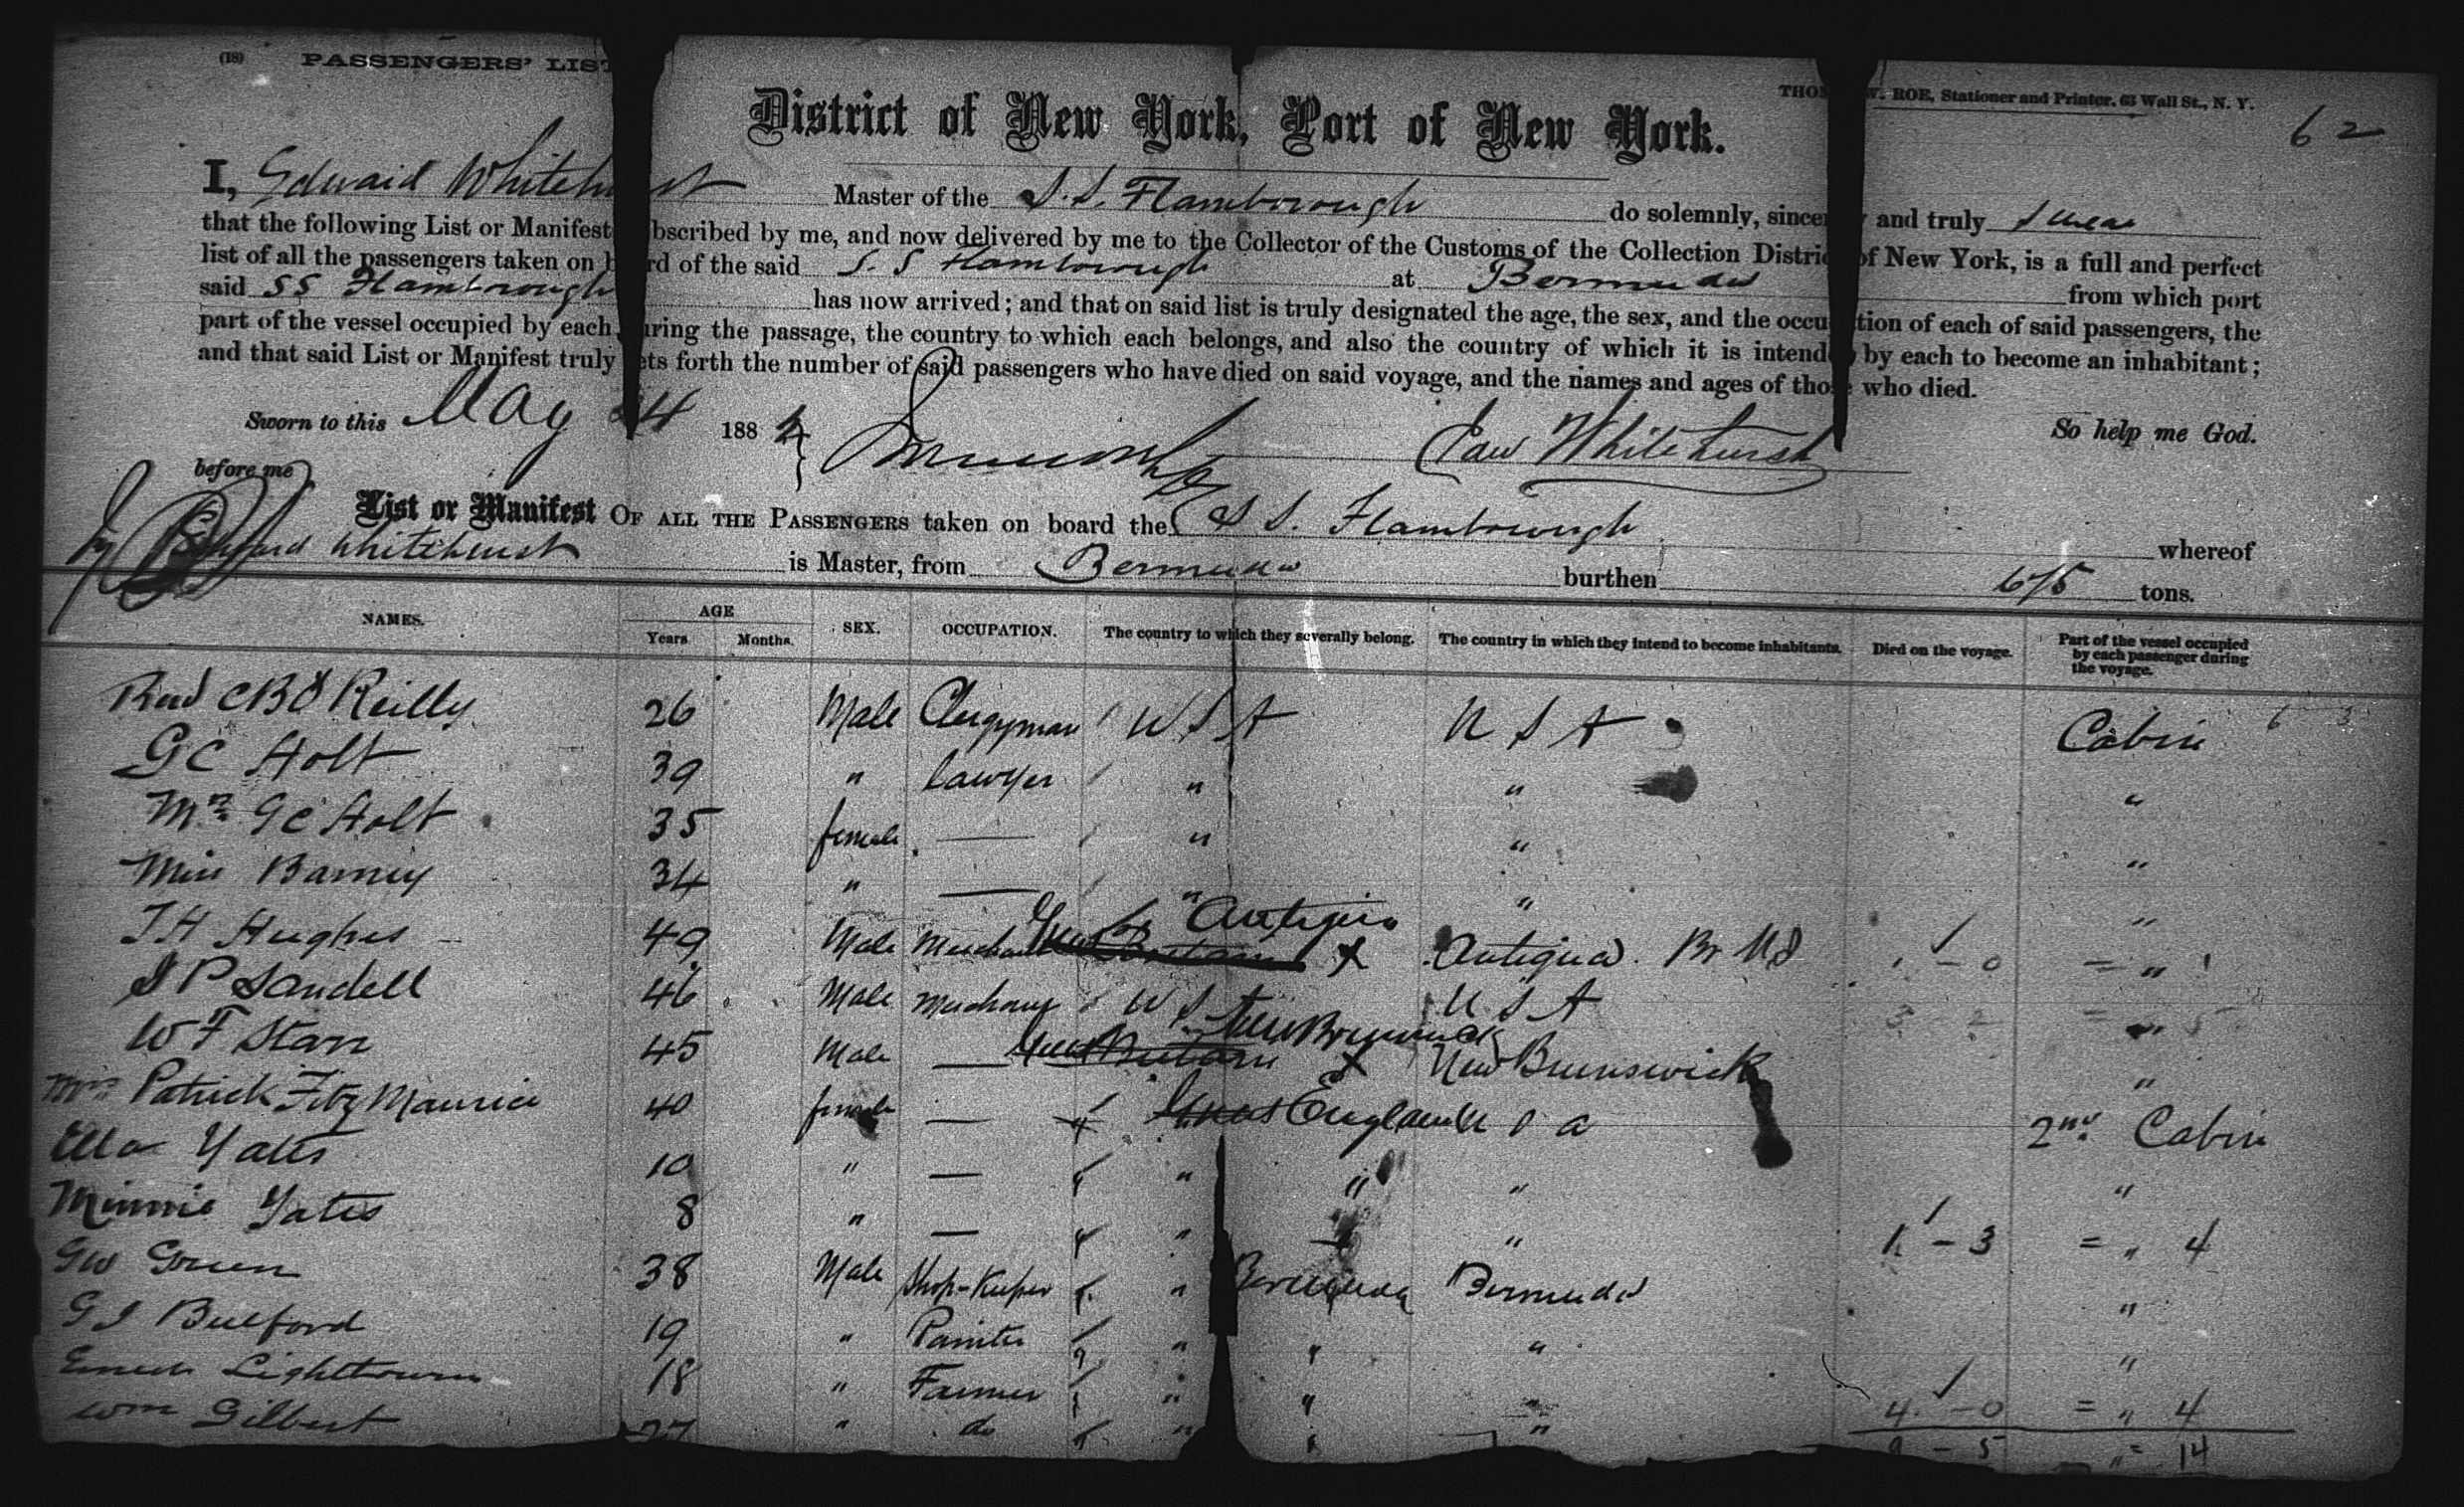 (18) PASSENGERS' LIST
THOS W. ROE, Stationer and Printer, 63 Wall St., N. Y.
62
District of New York, Port of New York.
I, Edward Whitehurst Master of the S.S. Flamborough do solemnly, sincerely and truly swear
that the following List or Manifest subscribed by me, and now delivered by me to the Collector of the Customs of the Collection District of New York, is a full and perfect
list of all the passengers taken on board of the said S.S Flamborough at Bermuda from which port
said SS Flamborough has now arrived; and that on said list is truly designated the age, the sex, and the occupation of each of said passengers, the
part of the vessel occupied by each during the passage, the country to which each belongs, and also the country of which it is intended by each to become an inhabitant;
and that said List or Manifest truly sets forth the number of said passengers who have died on said voyage, and the names and ages of those who died.
Sworn to this May 24 188
Whitehurst So help me God.
before me
List or Manifest OF ALL THE PASSENGERS taken on board the S S. Flamborough whereof
Whitehurst is Master, from Bermuda burthen 675 tons.
NAMES. AGE Years Months. SEX. OCCUPATION. The country to which they severally belong. The country in which they intend to become inhabitants. Died on the voyage. Part of the vessel occupied by each passenger during the voyage.
Revd C B O'Reilly 26 Male Clergyman U S A U S A Cabin
G C Holt 39 " Lawyer " " "
Mrs G C Holt 35 female — " " "
Miss Barney 34 " — " " "
T H Hughes 49 Male Merchant Antigua Antigua. Br W I 1 - 0 = " 1
S P Sandell 46 Male U S U S A "
W F Starr 45 Male — New Brunswick New Brunswick "
Mrs Patrick FitzMaurice 40 female — England U S a 2nd Cabin
Ella Yates 10 " — " " " "
Minnie Yates 8 " — " " 1 - 3 = " 4
Geo Green 38 Male Shop-Keeper " Bermuda Bermuda "
G J Bulford 19 " Painter " " " "
Lightbourn 18 " Farmer " " " 4 - 0 = " 4
Wm Gilbert 27 " do " " " 9 - 5 " = 14